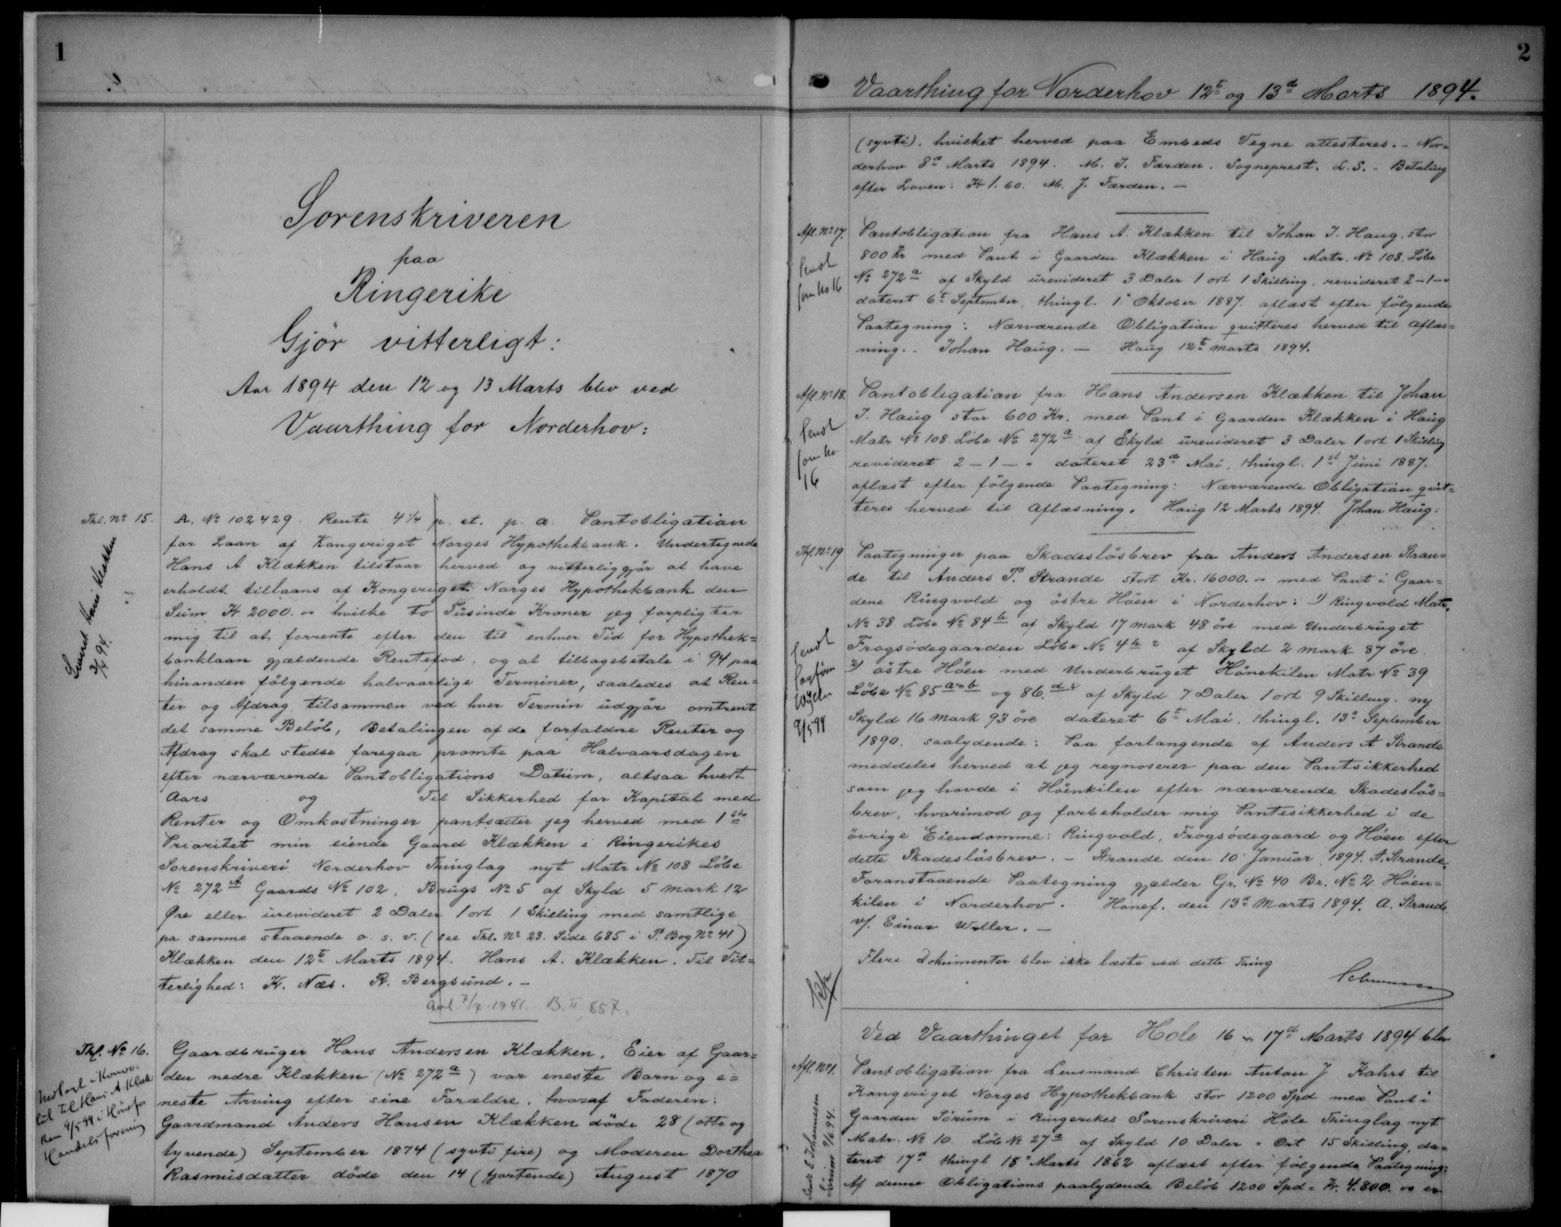 1
Sorenskriveren
paa
Ringerike
Gjör vitterligt:
Aar 1894 den 12 og 13 Marts blev ved
Vaarthing for Norderhov:
Thl. No 15.
A. No 102429. Rente 4 1/4 p. ct. p. a. Pantobligation
for Laan af Kongeriget Norges Hypothekbank. Undertegnede
Hans A Klækken tilstaar herved og vitterliggjör at have
erholdt tillaans af Kongeriget Norges Hypothekbank den
Sum Kr 2000. hvilke to Tusinde Kroner jeg forpligter
mig til at forrente efter den til enhver Tid for Hypothek=
banklaan gjældende Rentefod, og at tilbagebetale i 94 paa
hinanden fölgende halvaarlige Terminer, saaledes at Ren=
ter og Afdrag tilsammen ved hver Termin udgjör omtrent
det samme Belöb, Betalingen af de forfaldne Renter og
Afdrag skal stedse foregaa promte paa Halvaarsdagen
efter nærværende Pantobligations Datum, altsaa hvert
Aars og Til Sikkerhed for Kapital med
Renter og Omkostninger pantsætter jeg herved med 1ste
Prioritet min eiende Gaard Klækken i Ringerikes
Sorenskriveri Norderhov Thinglag nyt Matr No 108 Löbe
No 272a Gaards No 102, Brugs No 5 af Skyld 5 mark 12
Öre eller urevideret 2 Daler 1 ort 1 Skilling med samtlige
pa samme staaende o. s. v. (see Thl. No 23. Side 685 i P. Bog No 41)
Klækken den 12te Marts 1894. Hans A. Klækken. Til Vit=
terlighed: K. Næs. R. Bergsund. -
Avl. 7/7 1941. B. II 857.
Thl. No 16.
Gaardbruger Hans Andersen Klækken, Eier af Gaar=
den nedre Klækken (No 272a) var eneste Barn og e=
neste Arving efter sine Forældre, hvoraf Faderen:
Gaardmand Anders Hansen Klækken döde 28 (otte og
tyvende) September 1874 (sytti fire) og Moderen Dorthea
Rasmusdatter döde den 14 (fjortende) August 1870
2
Vaarthing for Norderhov 12te og 13de Marts 1894.
(sytti). hvilket herved paa Embeds Vegne attesteres. - Nor=
derhov 8de Marts 1894. M. J. Færden. Sogneprest. L. S. - Betaling
efter Loven: Kr 1. 60. M. J. Færden. -
Afl. No 17.
Sendt
som No 16
Pantobligation fra Hans A. Klækken til Johan J. Haug, stor
800 Kr med Pant i Gaarden Klækken i Haug Matr. No 108. Löbe
No 272a af Skyld urevideret 3 Daler 1 ort 1 Skilling, revideret 2-1-
dateret 6te September, thingl. 1 Oktober 1887. aflæst efter fölgende
Paategning: Nærværende Obligation qvitteres herved til Aflæs=
ning. - Johan Haug. - Haug 12te marts 1894.
Afl. No 18.
Sendt
som No
16
Pantobligation fra Hans Andersen Klækken til Johan
J. Haug stor 600 Kr. med Pant i Gaarden Klækken i Haug
Matr No 108 Löbe No 272a af Skyld urevideret 3 Daler 1 ort 1 Skilling
revideret 2-1- dateret 23de Mai, thingl. 1st Juni 1887.
aflæst efter fölgende Paategning: Nærværende Obligation qvit=
teres herved til Aflæsning. Haug 12 Marts 1894 Johan Haug.
Thl. No 19
Paategninger paa Skadeslösbrev fra Anders Andersen Stran=
de til Anders P. Strande stort Kr. 16000. med Pant i Gaar=
dene Ringvold og östre Höen i Norderhov: 1) Ringvold Matr.
No 38 Löbe No 84b af Skyld 17 mark 48 öre med Underbruget
Frogsödegaarden Löbe No 4b af Skyld 2 mark 87 öre.
2) östre Höen med Underbruget Hönekilen Matr No 39
Löbe No 85 a og b og 86 af Skyld 7 Daler 1 ort 9 Skilling, ny
Skyld 16 mark 93 öre dateret 6te Mai, thingl. 13de September
1890. saalydende: Paa forlangende af Anders A Strande
meddeles herved at jeg reynoserer paa den Pantsikkerhed
som jeg havde i Höenkilen efter nærværende Skadeslös=
brev, hvorimod jeg forbeholder mig Pantesikkerhed i de
övrige Eiendomme: Ringvold, Frogsödegaard og Höen efter
dette Skadeslösbrev. - Strande den 10 Januar 1894. A. Strande.
Foranstaaende Paategning gjelder Gr. No 40 Br. No 2 Höen=
kilen i Norderhov. Hönef. den 13de Marts 1894. A. Strande
v/ Einar Woller. -
Flere Dokumenter blev ikke læste ved dette Thing
Ved Vaarthinget for Hole 16 - 17de Marts 1894 blev
Afl. No 1.
Pantobligation fra Lensmand Christen Anton J Kahrs til
Kongeriget Norges Hypothekbank stor 1200 Spd med Pant i
Gaarden Sörum i Ringerikes Sorenskriveri Hole Thinglag nyt
Matr. No 10. Löb No 27a af Skyld 10 Daler " Ort 15 Skilling, da=
teret 17de thingl 18 Marts 1862 aflæst efter fölgende Paategning:
Af denne Obligations paalydende Belöb 1200 Spd = Kr. 4.800. er